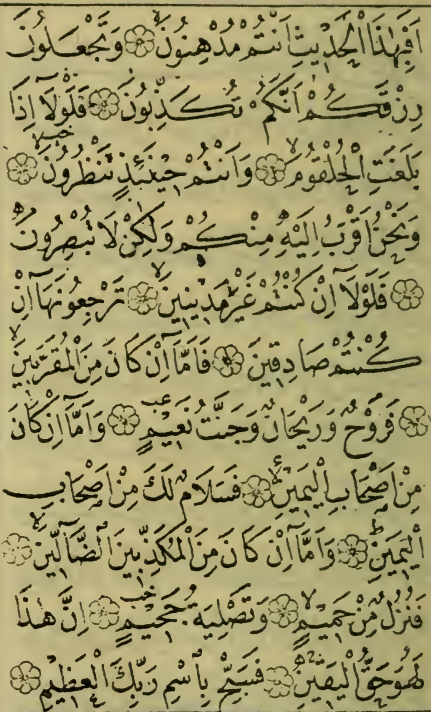 اَفَبِهٰذَا الْحَدٖيثِ اَنْتُمْ مُدْهِنُونَ ۞ وَتَجْعَلُونَ
رِزْقَكُمْ اَنَّكُمْ تُكَذِّبُونَ ۞ فَلَوْلَٓا اِذَا
بَلَغَتِ الْحُلْقُومَ ۞ وَاَنْتُمْ حٖينَئِذٍ تَنْظُرُونَ ۞
وَنَحْنُ اَقْرَبُ اِلَيْهِ مِنْكُمْ وَلٰكِنْ لَا تُبْصِرُونَ
۞ فَلَوْلَٓا اِنْ كُنْتُمْ غَيْرَ مَدٖينٖينَ ۞ تَرْجِعُونَهَٓا اِنْ
كُنْتُمْ صَادِقٖينَ ۞ فَاَمَّٓا اِنْ كَانَ مِنَ الْمُقَرَّبٖينَ
۞ فَرَوْحٌ وَرَيْحَانٌ وَجَنَّتُ نَعٖيمٍ ۞ وَاَمَّٓا اِنْ كَانَ
مِنْ اَصْحَابِ الْيَمٖينِ ۞ فَسَلَامٌ لَكَ مِنْ اَصْحَابِ
الْيَمٖينِ ۞ وَاَمَّٓا اِنْ كَانَ مِنَ الْمُكَذِّبٖينَ الضَّٓالّٖينَ ۞
فَنُزُلٌ مِنْ حَمٖيمٍ ۞ وَتَصْلِيَةُ جَحٖيمٍ ۞ اِنَّ هٰذَا
لَهُوَ حَقُّ الْيَقٖينِ ۞ فَسَبِّحْ بِاسْمِ رَبِّكَ الْعَظٖيمِ ۞